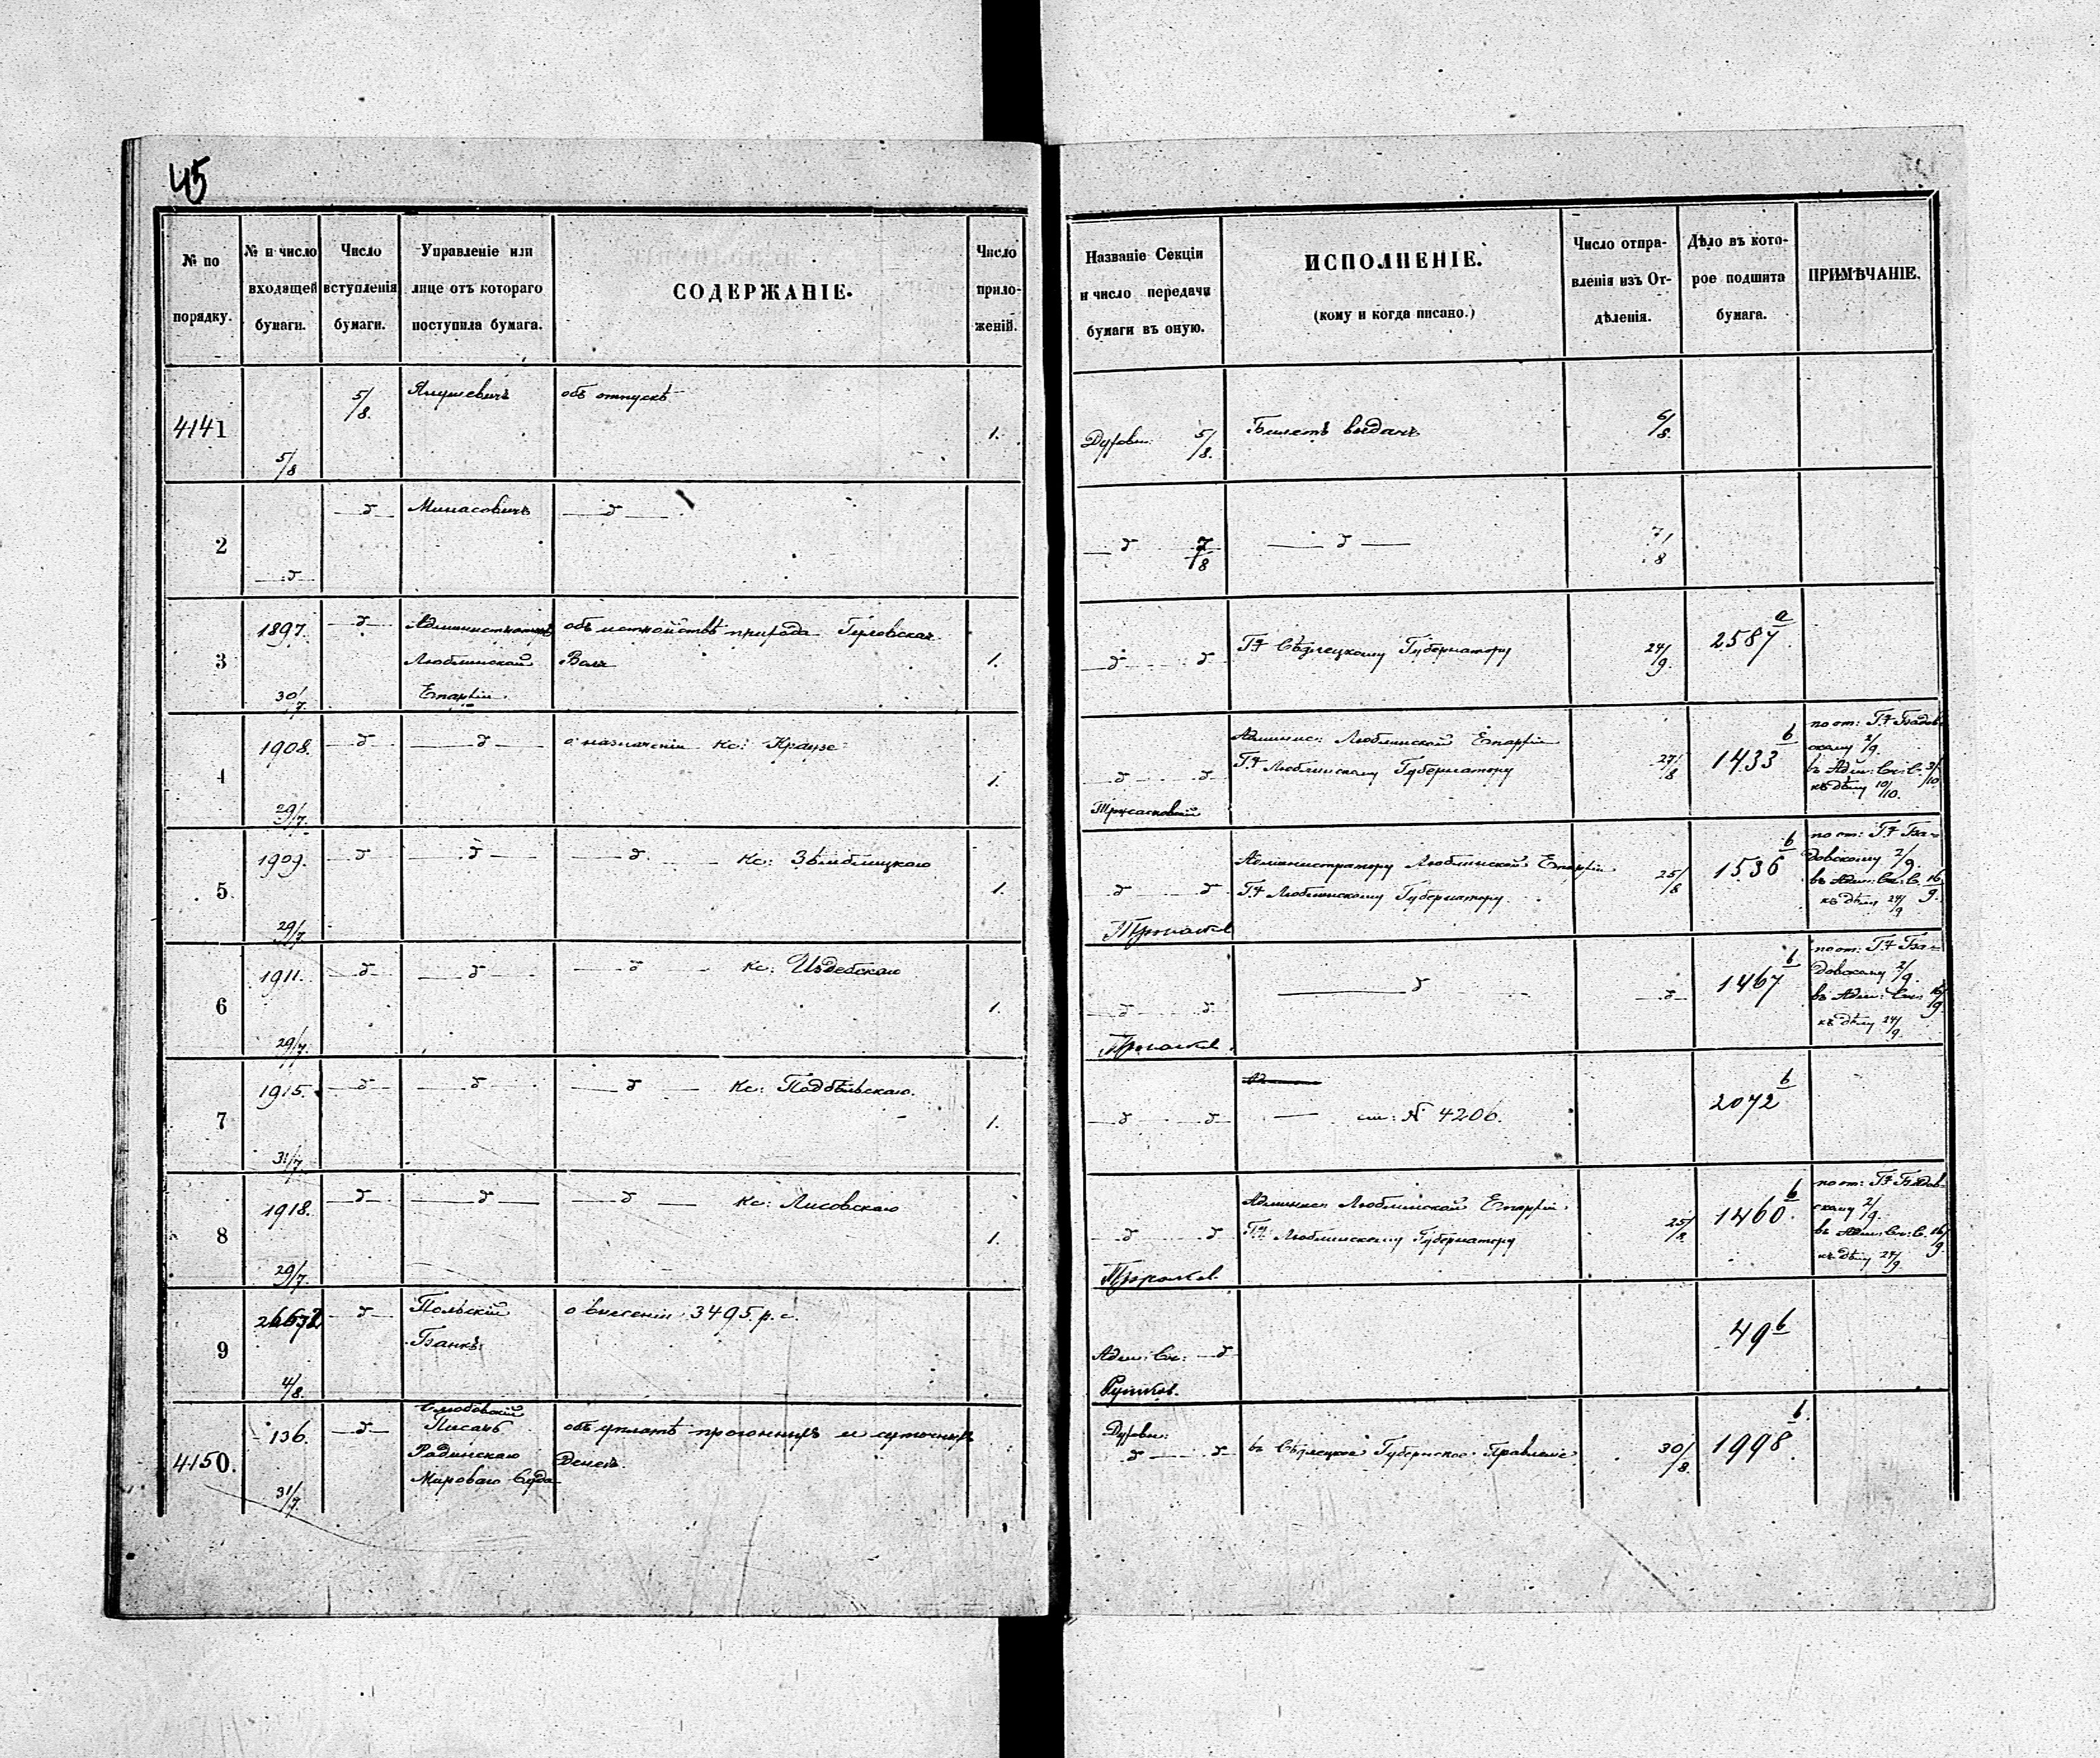 45
№ по порядку.
№ и число входящей бумаги.
Число вступленія бумаги.
Управленіе или лице отъ котораго поступила бумага.
СОДЕРЖАНІЕ.
Число приложеній.
Названіе Секціи и число передачи бумаги въ оную.
ИСПОЛНЕНІЕ.
(кому и когда писано.)
Число отправленія изъ Отдѣленія.
Дѣло въ которое подшита бумага.
ПРИМѢЧАНІЕ.
4141
5/8
5/8.
Янушевичъ
объ отпускѣ
1.
Духовн: 5/8.
Билетъ выданъ
6/8.
2
д
д
Минасовичъ
д
д 7/8
д
7/8
3
1897.
30/7.
д
Администраторъ
Люблинской
Епархіи.
объ устройствѣ прихода Гуловская
Воля
1.
д д
Гд Сѣдлецкому Губернатору
24/9.
2587 a
4
1908.
29/7.
д
д
о назначеніи Кс: Краузе
1.
д д
Админис: Люблинской Епархіи
Гд Люблинскому Губернатору
27/8
1433 b
по от:
скому 2/9.
въ Адм: Св: С. 3/10
къ дѣлу 10/10.
5
1909.
29/7
д
д
д Кс:
1.
д д
Администратору Люблинской Епархіи
Гд Люблинскому Губернатору
25/8
1536 b
по от:
довскому 2/9.
въ Адм: Св: С. 16/9.
къ дѣлу 24/9
6
1911.
29/7.
д
д
д Кс: Издебскаго
1.
д д
д
д
1467 b
по от:
довскому 2/9.
въ Адм: Св: 16/9
къ дѣлу 24/9.
7
1915.
31/7
д
д
д Кс: Подбѣльскаго.
1.
д д
см: № 4206.
2072 b
8
1918.
29/7.
д
д
д Кс: Лисовскаго
1.
д д
Админис: Люблинской Епархіи.
Гд Люблинскому Губернатору
25/8.
1460 b
по от:
скому 2/9.
въ Адм: Св: С. 16/9
къ дѣлу 24/9.
9
4/8.
д
Польскій
Банкъ
о внесеніи 3495 р. с.
Адм: Св: д
49 b
4150.
136.
31/7.
д
Писарь
Радинскаго
Мироваго Суда
объ уплатѣ прогонныхъ и суточныхъ
Денегъ.
Духовн:
д д
въ Сѣдлецкое Губернское Правленіе
30/8.
1998 b.